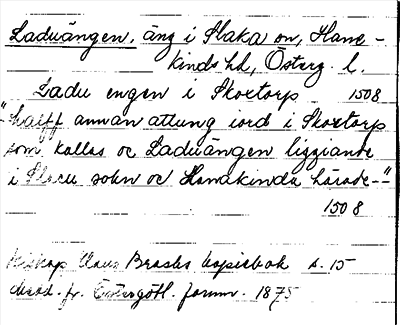 Laduängen, äng i Slaka sn, Hane-
kinds hd, Österg. l.
Ladu engen i Skoxtorp 1508
"halff annan attung iord i Skoxtorp
som kallas oc Laduängen liggiande
i Slacu sokn oc Hanakinda härade--"
1508
Biskop Hans Brasks kopiebok s. 15
Medd. fr. Östergötl. fornm. 1875